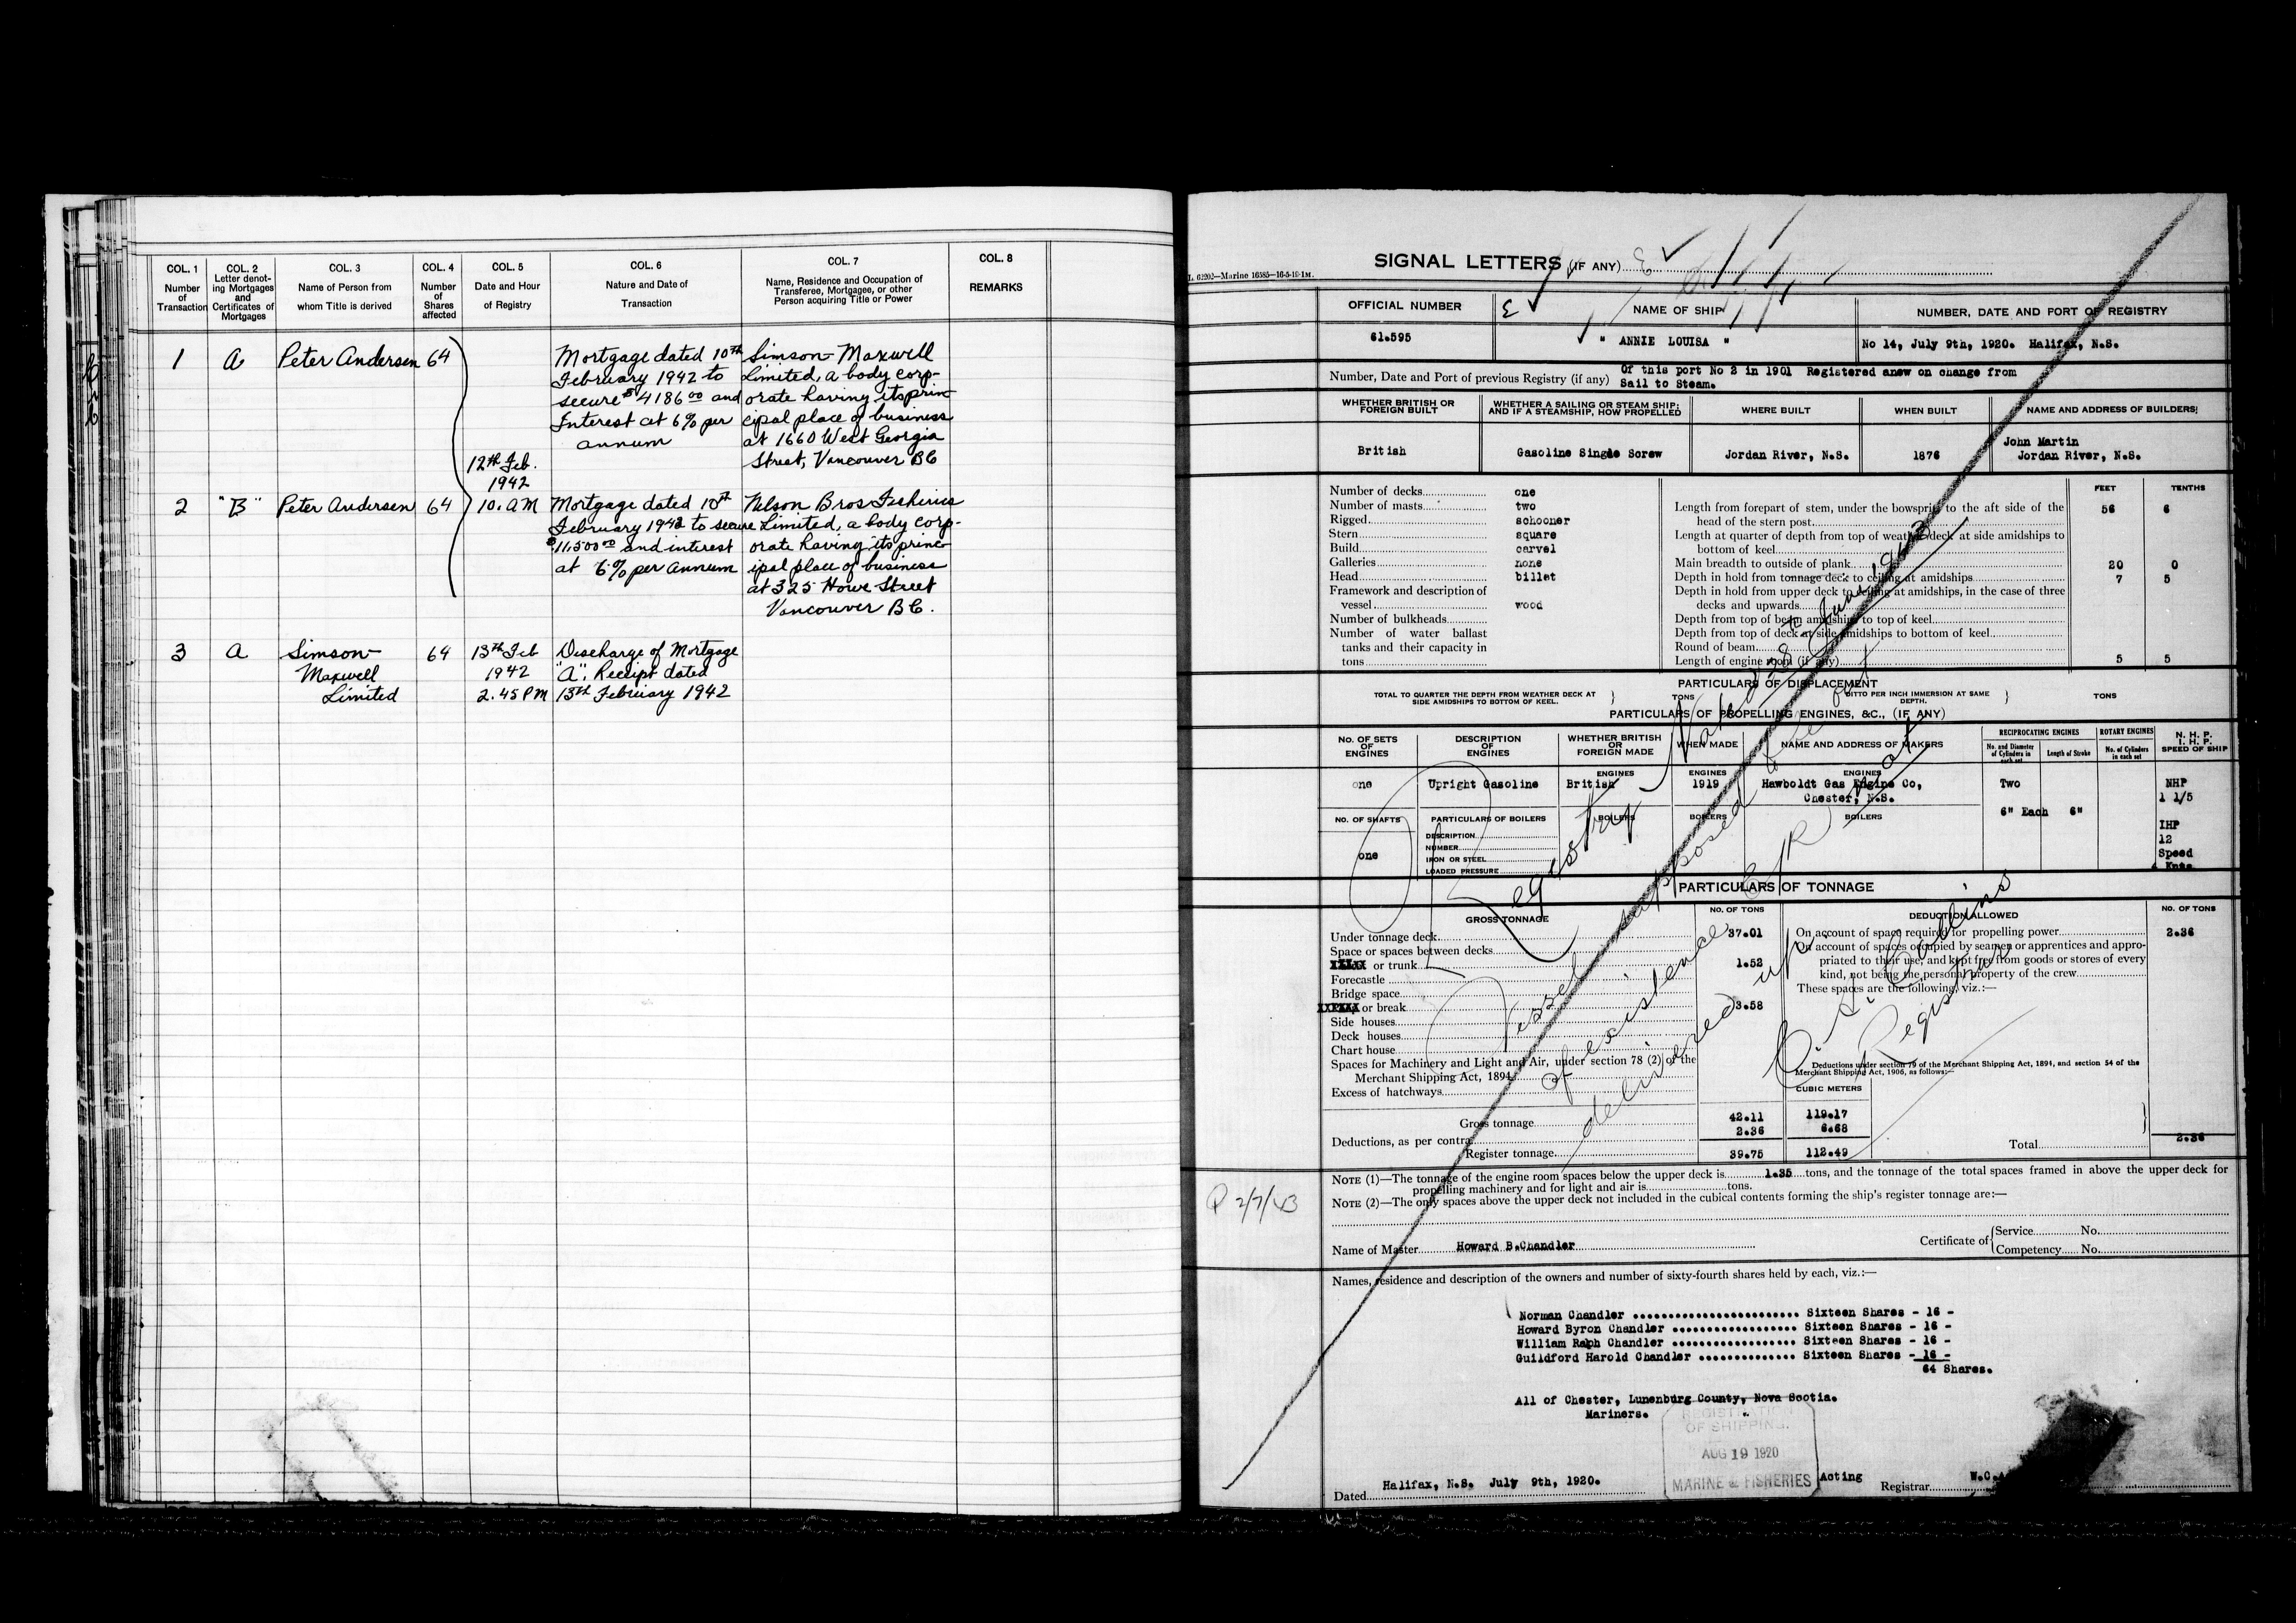 COL. 1
Number
of
Transaction
COL. 2
Letter denot-
ing Mortgages
and
Certificates of
Mortgages
COL. 3
Name of Person from
whom Title is derived
COL. 4
Number
of
Shares
affected
COL. 5
Date and Hour
of Registry
COL. 6
Nature and Date of
Transaction
COL. 7
Name, Residence and Occupation of
Transferee, Mortgagee, or other
Person acquiring Title or Power
COL. 8
REMARKS
1 A Peter Andersen 64
12th Feb.
1942
10. AM
Mortgage dated 10th
February 1942 to
secure $4186.00 and
Interest at 6% per
annum
Simson-Maxwell
Limited, a body corp-
orate having its prin
cipal place of business
at 1660 West Georgia
Street, Vancouver BC
2 "B" Peter Andersen 64
Mortgage dated 10th
February 1942 to secure
$11,500.00 and interest
at 6% per Annum
Nelson Bros Fisheries
Limited, a body corp-
orate having its princ-
ipal place of business
at 325 Howe Street
Vancouver BC.
3 A Simson-
Maxwell
Limited
64
13th Feb
1942
2.45 PM
Discharge of Mortgage
"A". Receipt dated
13th February 1942
L 62202—Marine 16585—16-5-19-1M.
SIGNAL LETTERS (IF ANY)
OFFICIAL NUMBER
NAME OF SHIP
NUMBER, DATE AND PORT OF REGISTRY
61.595
" ANNIE LOUISA "
No 14, July 9th, 1920. Halifax, N.S.
Number, Date and Port of previous Registry (if any)
Of this port No 2 in 1901 Registered anew on change from
Sail to Steam.
WHETHER BRITISH OR
FOREIGN BUILT
WHETHER A SAILING OR STEAM SHIP;
AND IF A STEAMSHIP, HOW PROPELLED
WHERE BUILT
WHEN BUILT
NAME AND ADDRESS OF BUILDERS
British
Gasoline Single Screw
Jordan River, N.S.
1876
John Martin
Jordan River, N.S.
Number of decks one
Number of masts two
Rigged schooner
Stern square
Build carvel
Galleries none
Head billet
Framework and description of
vessel wood
Number of bulkheads
Number of water ballast
tanks and their capacity in
tons
FEET TENTHS
Length from forepart of stem, under the bowsprit to the aft side of the
head of the stern post 56 6
Length at quarter of depth from top of weather deck at side amidships to
bottom of keel
Main breadth to outside of plank 20 0
Depth in hold from tonnage deck to ceiling at amidships 7 5
Depth in hold from upper deck to ceiling at amidships, in the case of three
decks and upwards
Depth from top of beam amidships to top of keel
Depth from top of deck at side amidships to bottom of keel
Round of beam
Length of engine room (if any) 5 5
PARTICULARS OF DISPLACEMENT
TOTAL TO QUARTER THE DEPTH FROM WEATHER DECK AT
SIDE AMIDSHIPS TO BOTTOM OF KEEL.
TONS
DITTO PER INCH IMMERSION AT SAME
DEPTH.
TONS
PARTICULARS OF PROPELLING ENGINES, &C., (IF ANY)
No. OF SETS
OF
ENGINES
DESCRIPTION
OF
ENGINES
WHETHER BRITISH
OR
FOREIGN MADE
WHEN MADE
NAME AND ADDRESS OF MAKERS
RECIPROCATING ENGINES
No. and Diameter
of Cylinders in
each set
Length of Stroke
ROTARY ENGINES
No. of Cylinders
in each set
N. H. P.
I. H. P.
SPEED OF SHIP
one
Upright Gasoline
ENGINES
British
ENGINES
1919
ENGINES
Hawboldt Gas Engine Co,
Chester, N.S.
Two
6" Each 6"
NHP
1 1/5
IHP
12
Speed
4 Knts.
NO. OF SHAFTS
one
PARTICULARS OF BOILERS
DESCRIPTION
NUMBER
IRON OR STEEL
LOADED PRESSURE
BOILERS
BOILERS
BOILERS
PARTICULARS OF TONNAGE
GROSS TONNAGE
NO. OF TONS
DEDUCTION ALLOWED
NO. OF TONS
Under tonnage deck 37.01
Space or spaces between decks
or trunk 1.52
Forecastle
Bridge space
or break 3.58
Side houses
Deck houses
Chart house
Spaces for Machinery and Light and Air, under section 78 (2) of the
Merchant Shipping Act, 1894
Excess of hatchways
Gross tonnage 42.11 119.17
Deductions, as per contra 2.36 6.68
Register tonnage 39.75 112.49
On account of space required for propelling power 2.36
On account of spaces occupied by seamen or apprentices and appro-
priated to their use, and kept free from goods or stores of every
kind, not being the personal property of the crew
These spaces are the following, viz.:—
Deductions under section 79 of the Merchant Shipping Act, 1894, and section 54 of the
Merchant Shipping Act, 1906, as follows:—
CUBIC METERS
Total 2.36
Registry
28th June 1943
Vessel supposed to be out
of existence
delivered up
Registrar
NOTE (1)—The tonnage of the engine room spaces below the upper deck is 1.35 tons, and the tonnage of the total spaces framed in above the upper deck for
propelling machinery and for light and air is tons.
NOTE (2)—The only spaces above the upper deck not included in the cubical contents forming the ship's register tonnage are:—
2/7/43
Name of Master Howard B.Chandler
Certificate of
Service No.
Competency No.
Names, residence and description of the owners and number of sixty-fourth shares held by each, viz.:—
Norman Chandler Sixteen Shares - 16 -
Howard Byron Chandler Sixteen Shares - 16 -
William Ralph Chandler Sixteen Shares - 16 -
Guildford Harold Chandler Sixteen Shares - 16 -
64 Shares.
All of Chester, Lunenburg County, Nova Scotia.
Mariners.
REGISTRATION
OF SHIPPING.
AUG 19 1920
MARINE & FISHERIES
Dated Halifax, N.S. July 9th, 1920.
Acting
Registrar W.C.